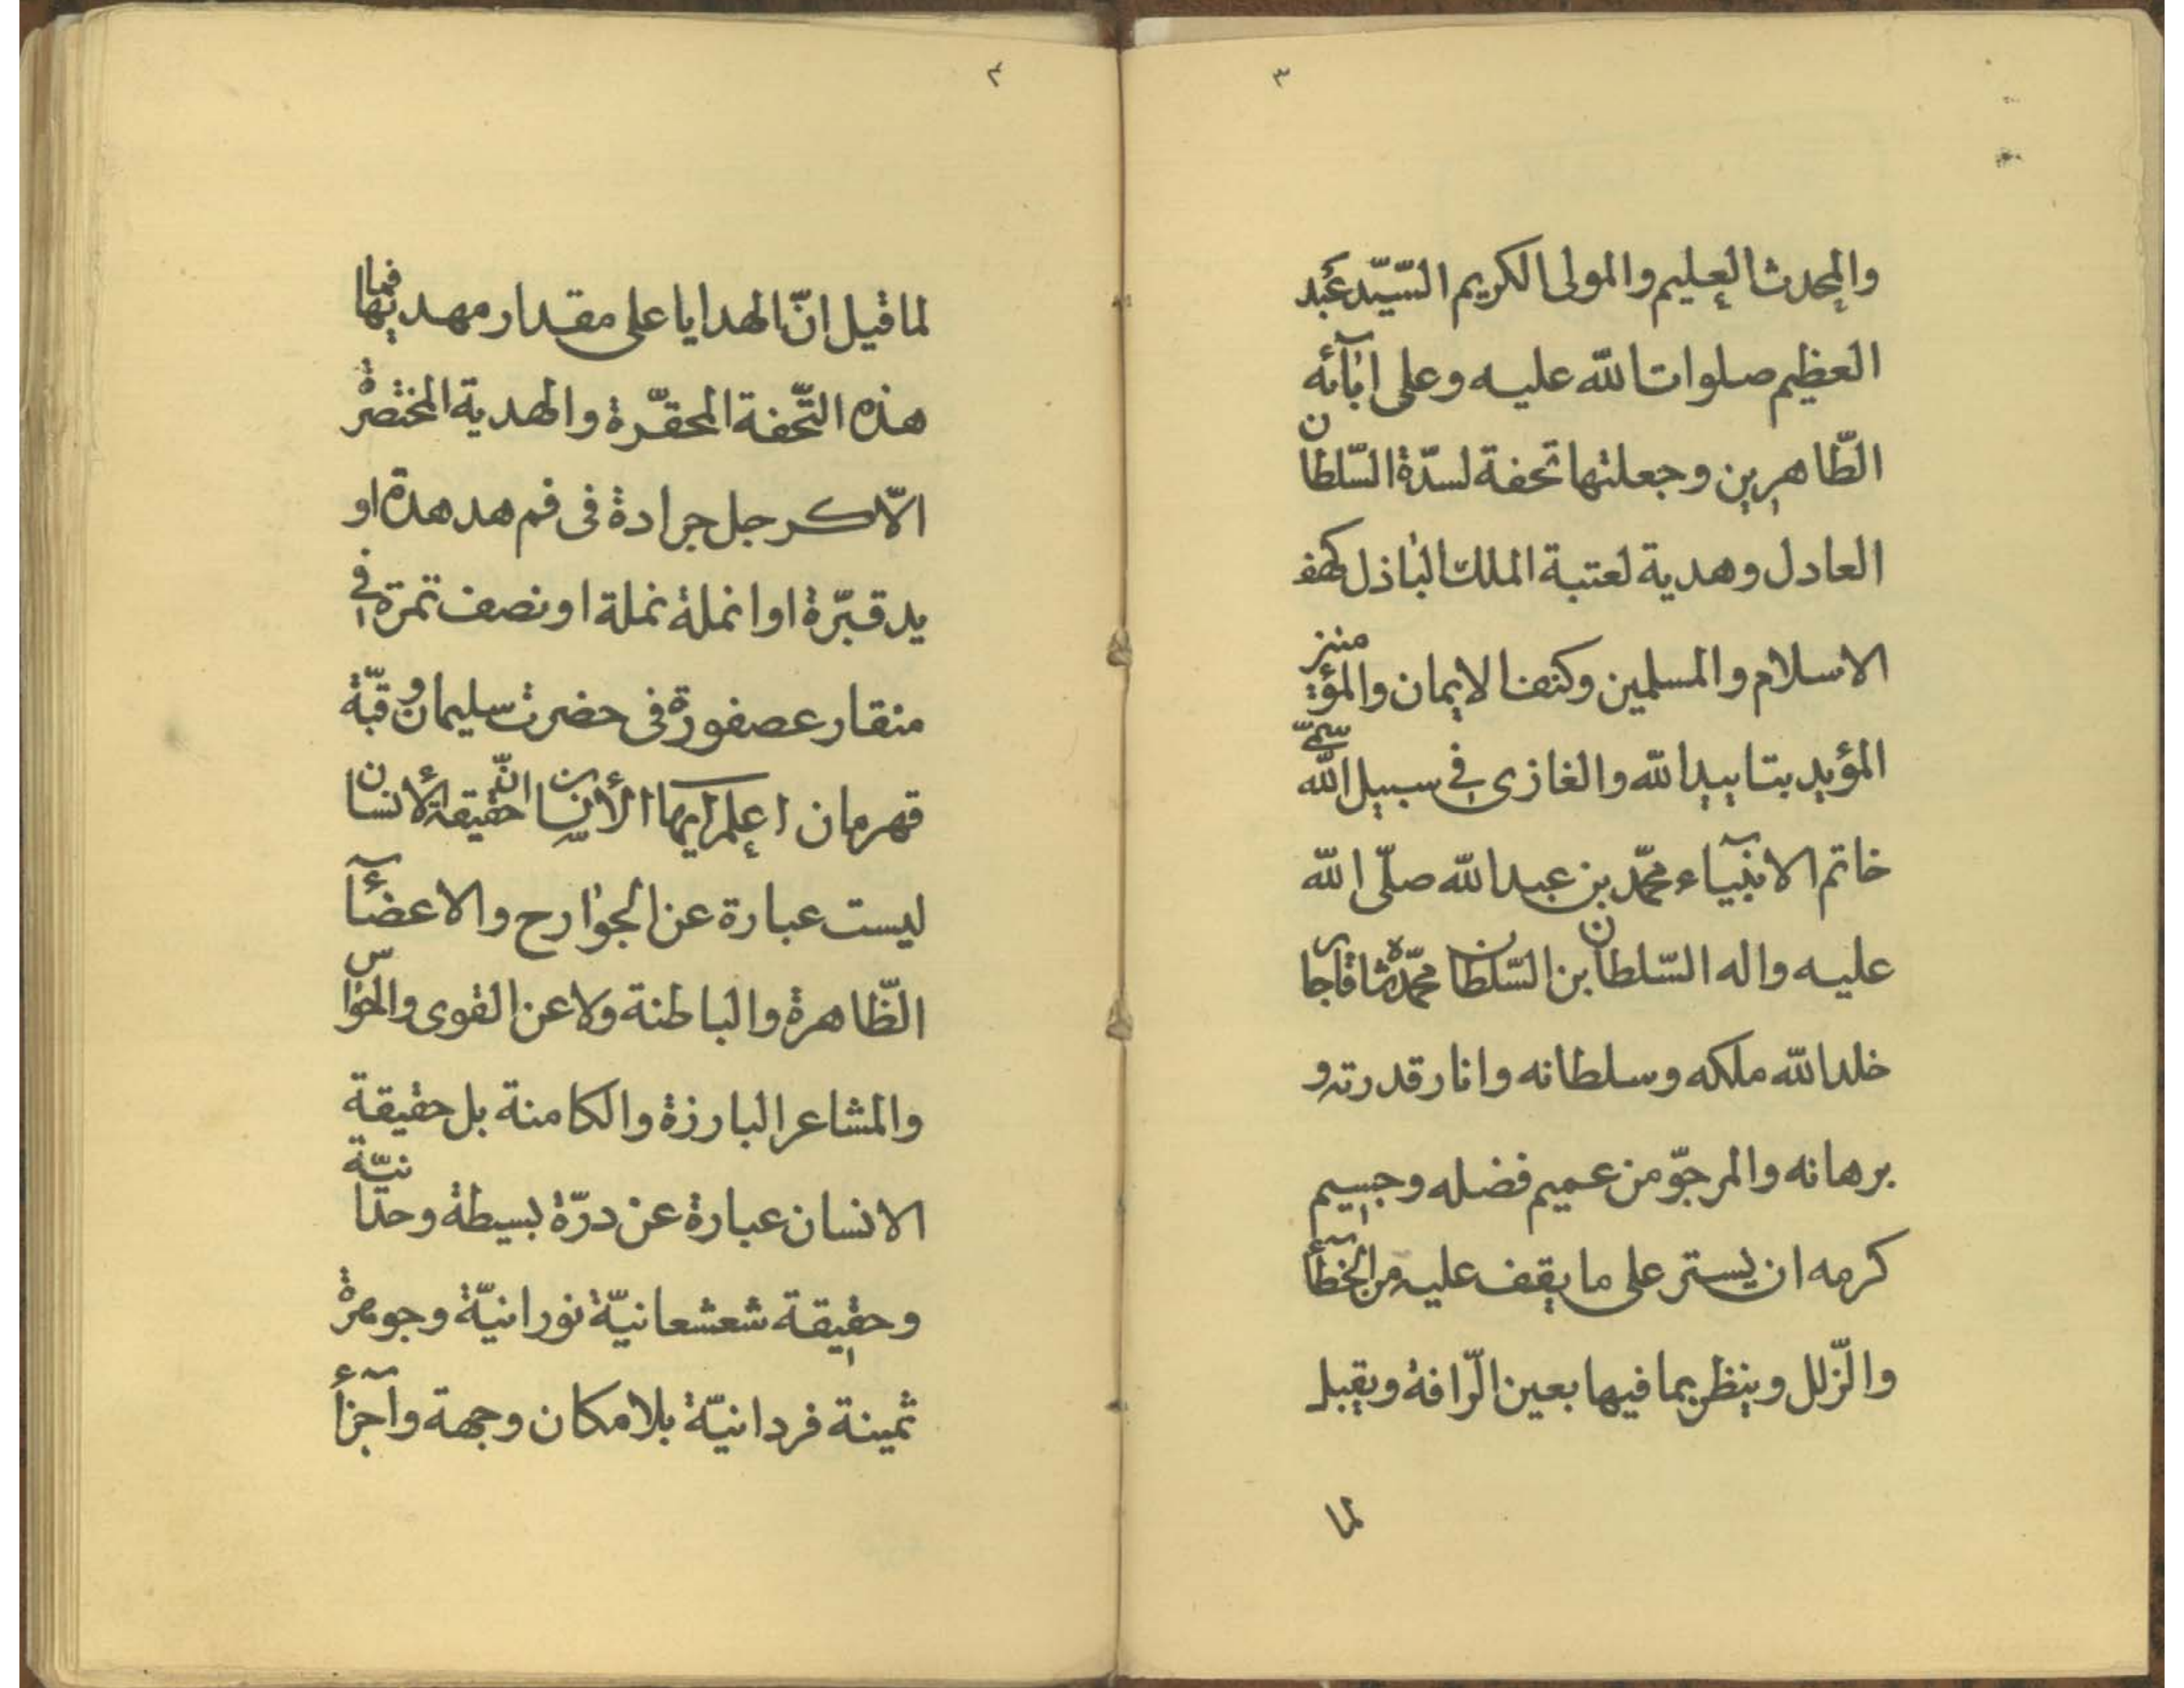 ٣
والمحدث العليم والمولى الكريم السّيّد عبد
العظيم صلوات اللّه عليه وعلى ابآئه
الطّاهرين وجعلتها تحفة لسدّة السّلطان
العادل وهدية لعتبة الملك الباذل كهف
الاسلام والمسلمين وكنف الايمان والمؤمنين
المؤيد بتاييد اللّه والغازى فى سبيل اللّه سمّى
خاتم الانبيآء محمّد بن عبد اللّه صلّى اللّه
عليه واله السّلطان بن السّلطان محمّد شاه قاجار
خلد اللّه ملكه وسلطانه وانار قدرته و
برهانه والمرجوّ من عميم فضله وجسيم
كرمه ان يستر على ما يقف عليه من الخطآء
والزّلل وينظر بما فيها بعين الرّافة ويقبل
لما
٤
لما قيل انّ الهدايا على مقدار مهديها فما
هذه التّحفة المحقّرة والهدية المختصرة
الّا كرجل جرادة فى فم هدهدة او
يد قبّرة او انملة نملة او نصف تمرة فى
منقار عصفورة فى حضرت سليمان و قبّة
قهرمان اعلم ايها الأنسان انّ حقيقة الأنسان
ليست عبارة عن الجوارح والاعضآء
الظّاهرة والباطنة ولا عن القوى والحواس
والمشاعر البارزة والكامنة بل حقيقة
الانسان عبارة عن درّة بسيطة وحدانيّة
وحقيقة شعشعانيّة نورانيّة وجوهرة
ثمينة فردانيّة بلا مكان وجهة وأجزآء